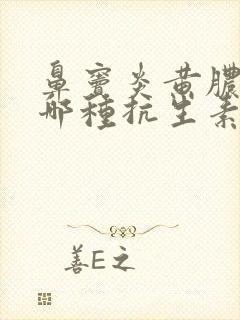 鼻竇炎黃膿
哪種抗生素
善E之